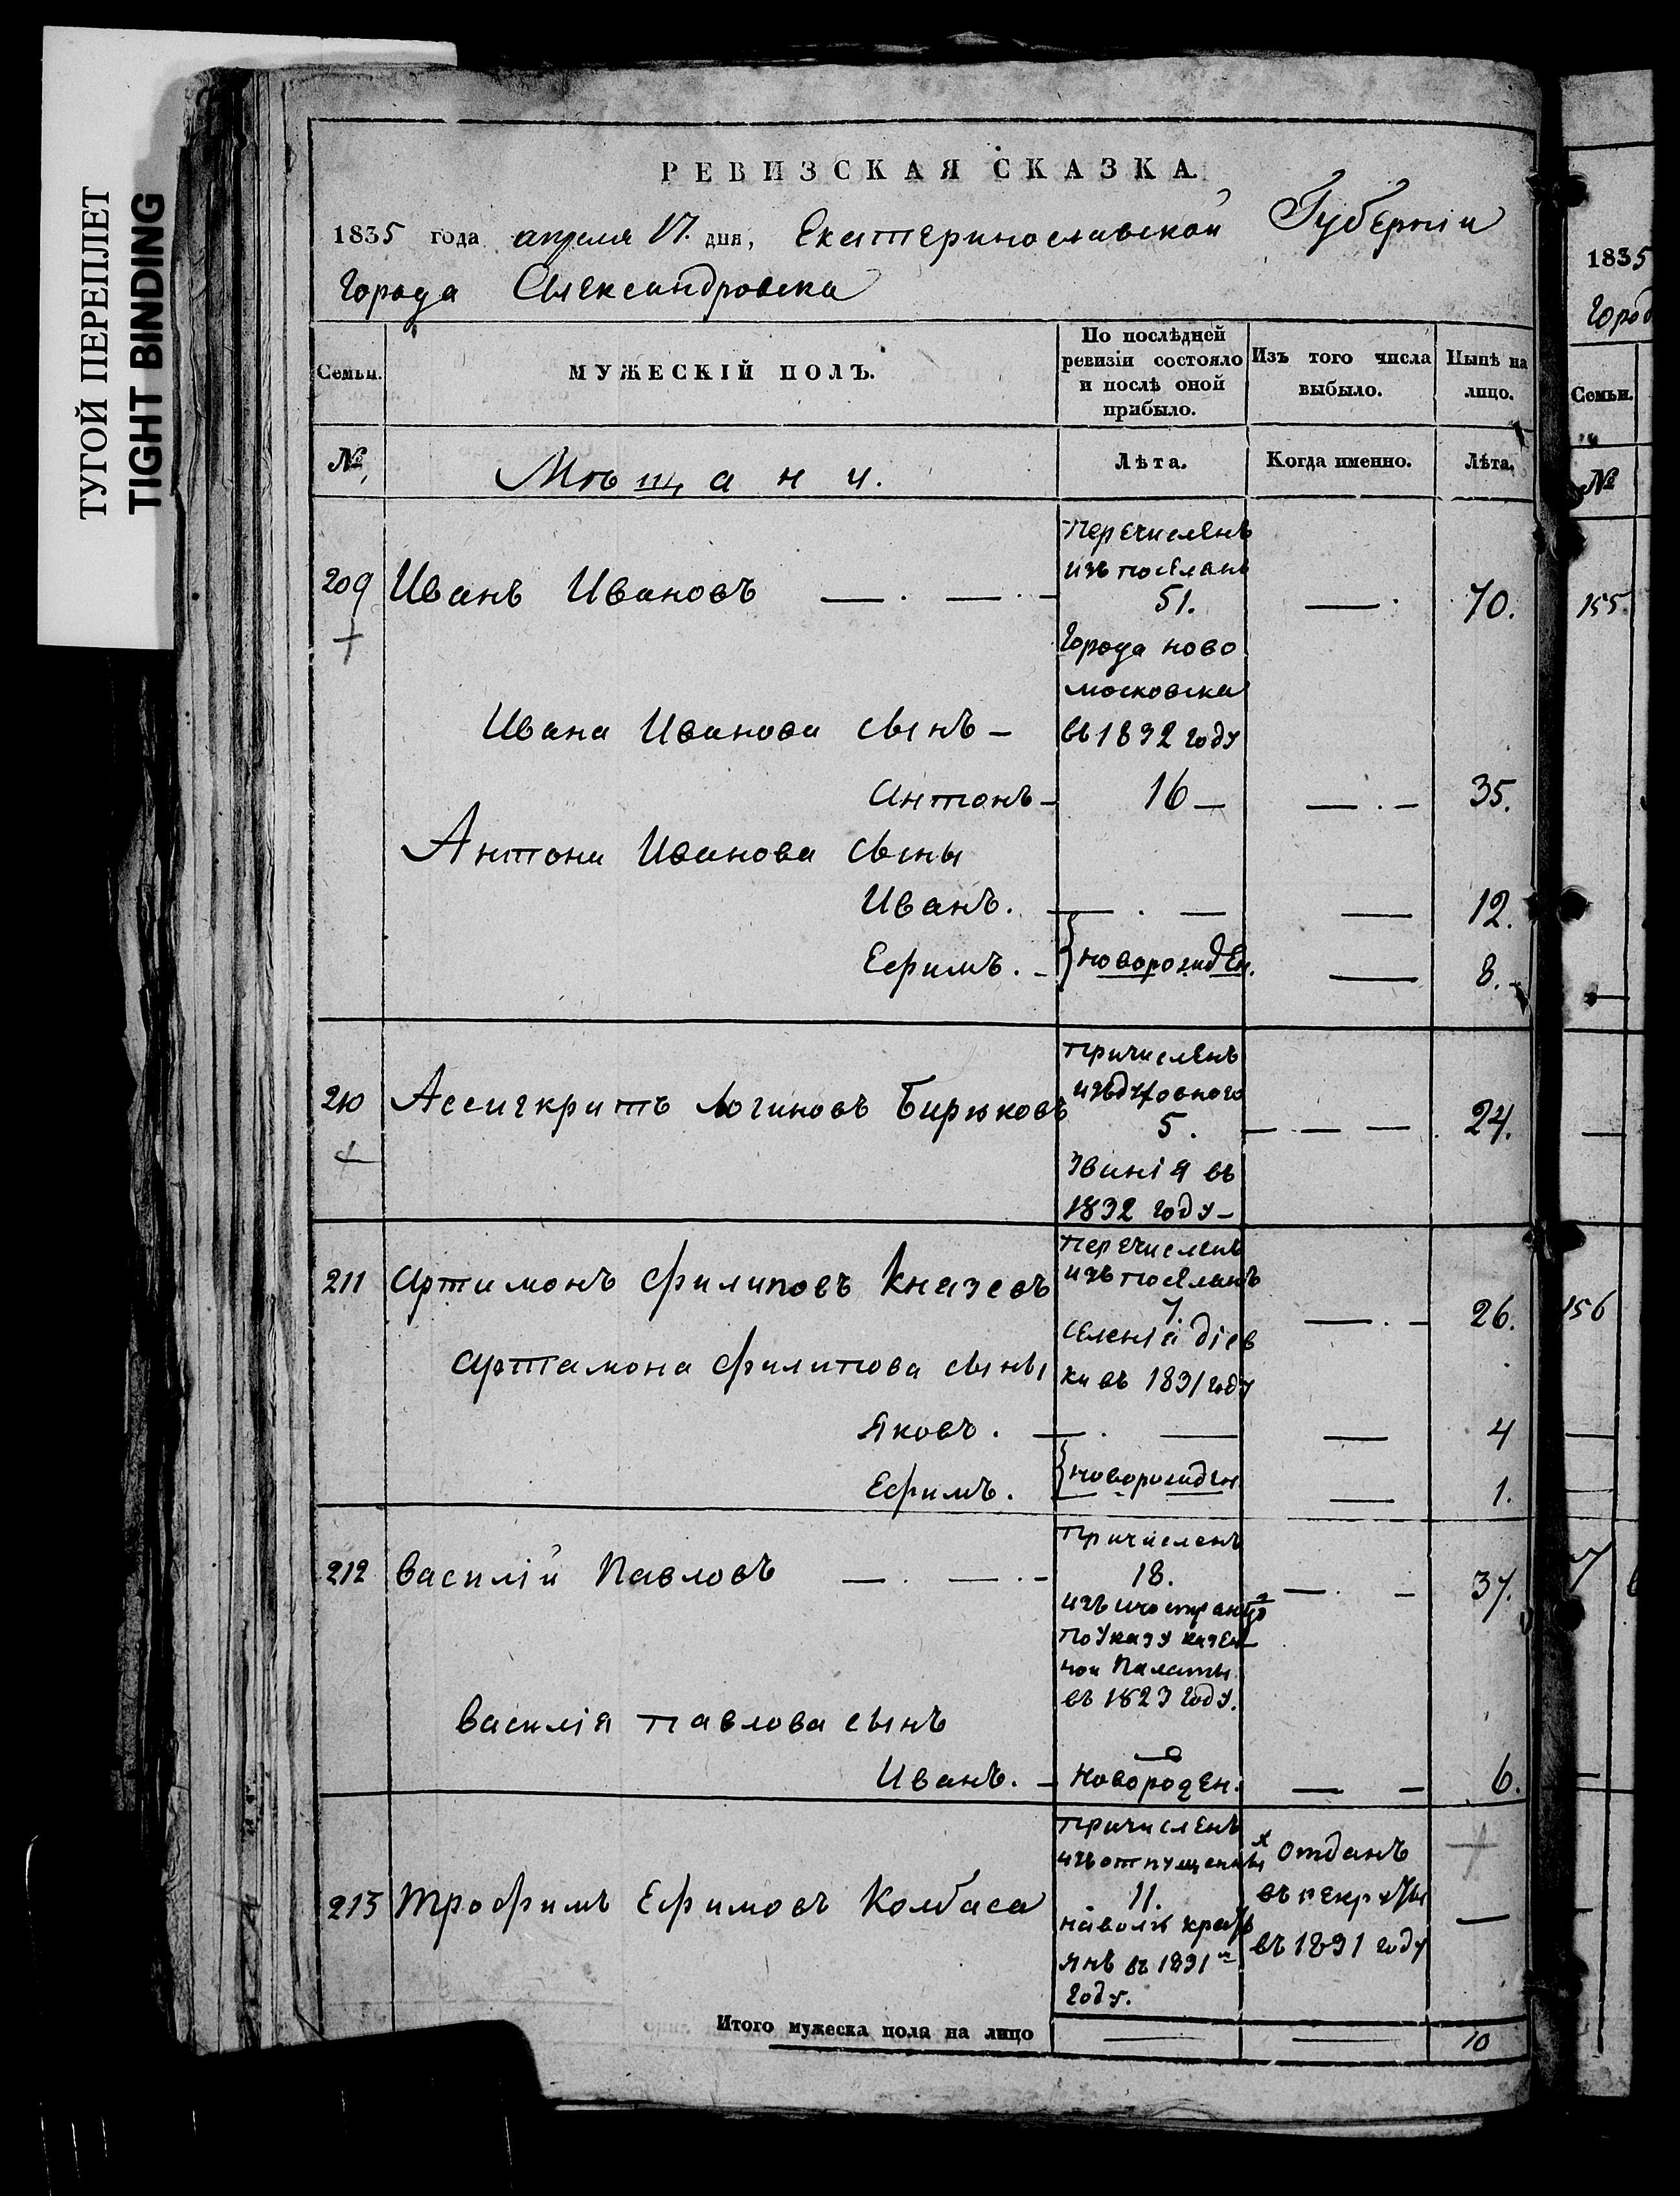 ТУГОЙ ПЕРЕПЛЕТ
TIGHT BINDING
РЕВИЗСКАЯ СКАЗКА.
1835 года апреля 17. дня, Екатеринославской Губернiи
города Александровска
Семьи.
МУЖЕСКIЙ ПОЛЪ.
По послѣдней
ревизiи состояло
и послѣ оной
прибыло.
Изъ того числа
выбыло.
Нынѣ на
лицо.
№
Мѣщани.
Лѣта.
Когда именно.
Лѣта.
перечисленъ
изъ поселянъ
209 Иванъ Ивановъ — . — . — 51. — . 70.
города ново
московска
Ивана Иванова сынъ — въ 1832 году
Антонъ — 16 — — . — 35.
Антона Иванова сыны
Иванъ. — . — — 12.
Ефимъ. — } новорожден. — 8.
причисленъ
изъ духовного
210 Ассигкритъ Логиновъ Бирюковъ 5. — — — 24.
званiя въ
1832 году —
перечисленъ
изъ поселянъ
211 Артимонъ Филиповъ Князевъ 7. — . — 26.
селенiя дiев
Артамона Филипова сыны ки въ 1831 году
Яковъ. — . — — 4
Ефимъ. } новорожден — 1.
причисленъ
212 Василiй Павловъ — . — . — 18. — . — 37.
изъ иностранцо
по указу казен
ной Палаты
въ 1823 году.
Василiя Павлова сынъ
Иванъ. — Новорожден. — — 6.
причисленъ
изъ отпущенны х отданъ
213 Трофимъ Ефимовъ Колбаса 11. въ рекруты —
на волю крестъ
янъ въ 1831 м въ 1831 году
году.
Итого мужеска пола на лицо — — 10
1835
Город
Семьи.
№
155
156